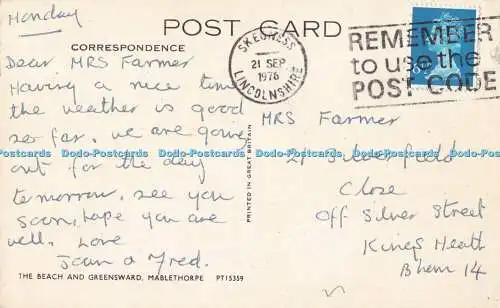 Monday
POST CARD
CORRESPONDENCE
Dear MRS Farmer
Having a nice time
the weather is good
so far, we are gone
out for the day
tomorrow, see you
soon, hope you are
well. Love
Jean a Fred.
THE BEACH AND GREENSWARD, MABLETHORPE PT15359
PRINTED IN GREAT BRITAIN
SKEGNESS
21 SEP
1976
LINCOLNSHIRE
REMEMBER
to use the
POST CODE
MRS Farmer
21 Silverfield
Close
Off Silver Street
Kings Heath
B'hem 14
Dodo-Postcards Dodo-Postcards Dodo-Postcards Dodo-Postcards Dodo-Postcards Dodo-Postcards